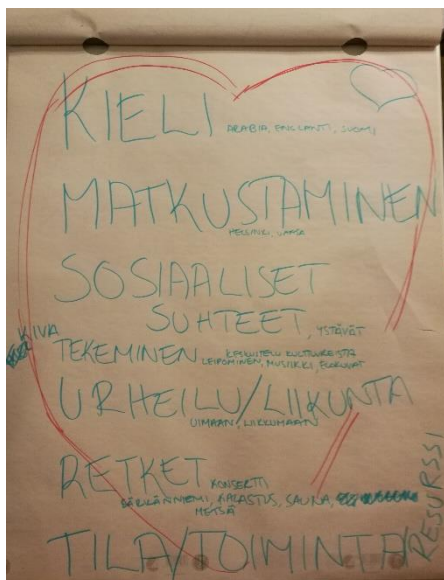 KIELI ARABIA, ENGLANTI, SUOMI
MATKUSTAMINEN
HELSINKI, VAASA
SOSIAALISET
SUHTEET, YSTÄVÄT
KIVA
TEKEMINEN KESKUSTELU KULTTUUREISTA
LEIPOMINEN, MUSIIKKI, ELOKUVAT
URHEILU/LIIKUNTA
UIMAAN, LIIKKUMAAN
RETKET KONSERTTI
SÄRKÄNNIEMI, KALASTUS, SAUNA,
METSÄ
TILA/TOIMINTA
RESURSSI